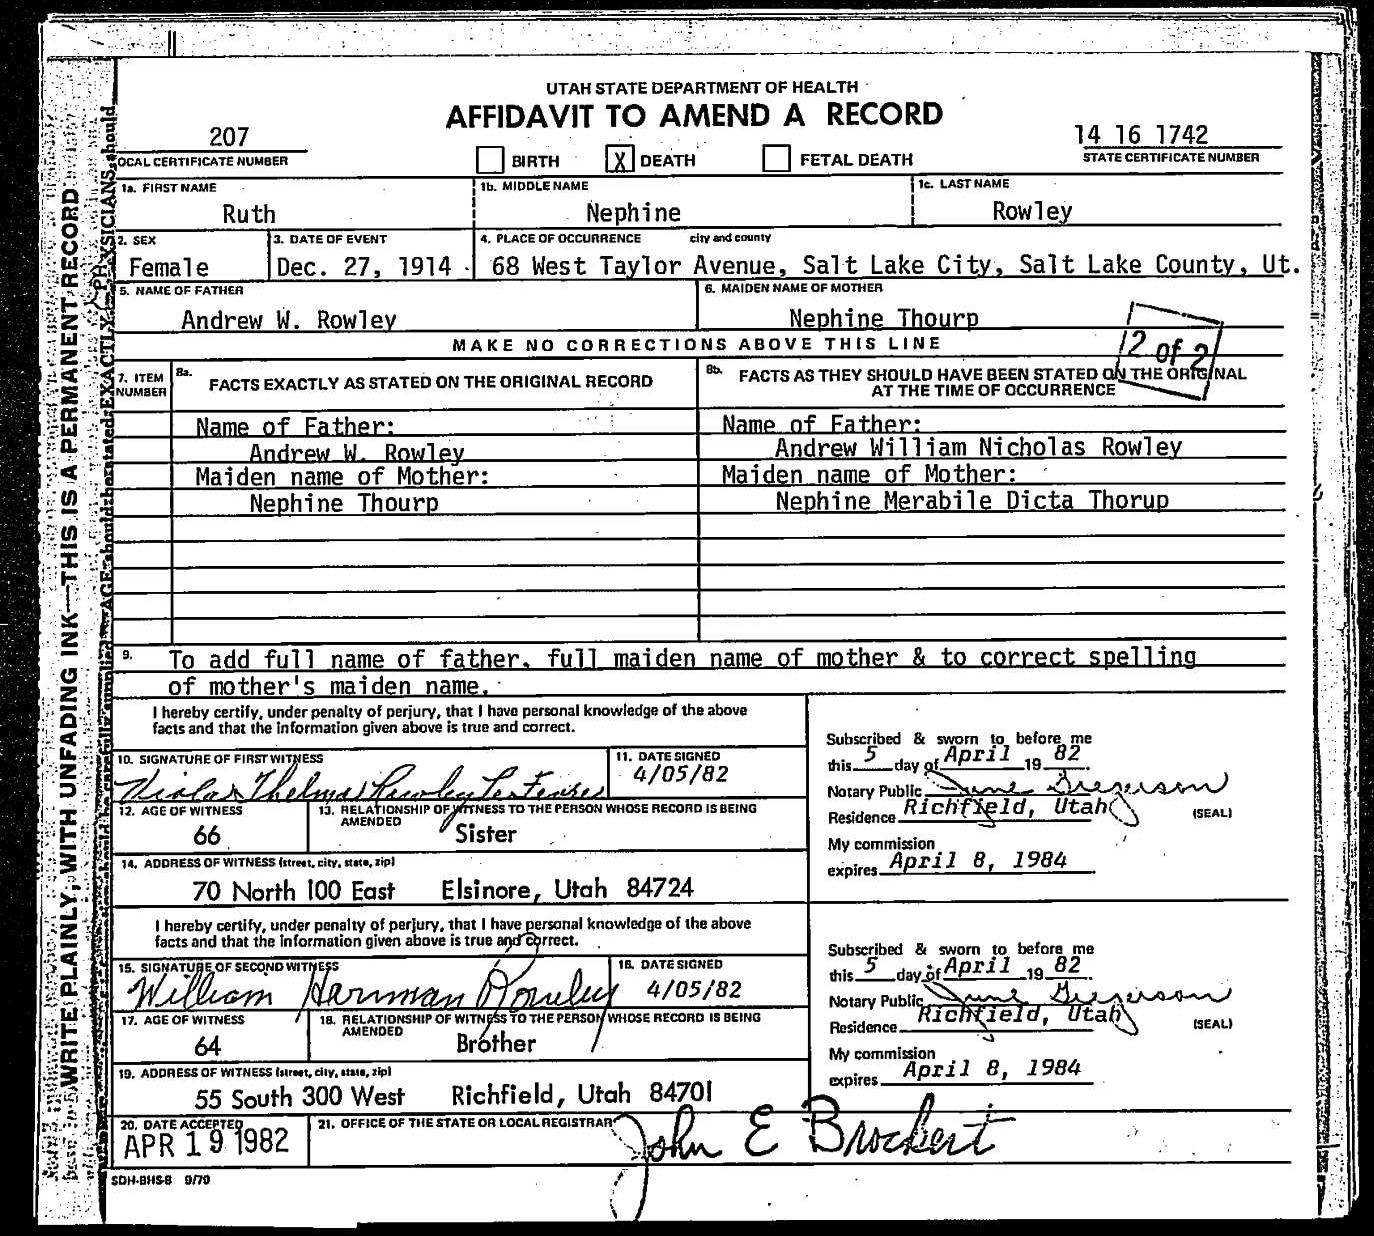 UTAH STATE DEPARTMENT OF HEALTH
AFFIDAVIT TO AMEND A RECORD
207
OCAL CERTIFICATE NUMBER
BIRTH
X DEATH
FETAL DEATH
14 16 1742
STATE CERTIFICATE NUMBER
1a. FIRST NAME
Ruth
1b. MIDDLE NAME
Nephine
1c. LAST NAME
Rowley
2. SEX
Female
3. DATE OF EVENT
Dec. 27, 1914
4. PLACE OF OCCURRENCE city and county
68 West Taylor Avenue, Salt Lake City, Salt Lake County, Ut.
5. NAME OF FATHER
Andrew W. Rowley
6. MAIDEN NAME OF MOTHER
Nephine Thourp
2 of 2
MAKE NO CORRECTIONS ABOVE THIS LINE
7. ITEM NUMBER
8a. FACTS EXACTLY AS STATED ON THE ORIGINAL RECORD
8b. FACTS AS THEY SHOULD HAVE BEEN STATED ON THE ORIGINAL
AT THE TIME OF OCCURRENCE
Name of Father:
Andrew W. Rowley
Maiden name of Mother:
Nephine Thourp
Name of Father:
Andrew William Nicholas Rowley
Maiden name of Mother:
Nephine Merabile Dicta Thorup
9. To add full name of father, full maiden name of mother & to correct spelling
of mother's maiden name.
I hereby certify, under penalty of perjury, that I have personal knowledge of the above
facts and that the information given above is true and correct.
10. SIGNATURE OF FIRST WITNESS
Viola Thelma Rowley
11. DATE SIGNED
4/05/82
12. AGE OF WITNESS
66
13. RELATIONSHIP OF WITNESS TO THE PERSON WHOSE RECORD IS BEING
AMENDED
Sister
14. ADDRESS OF WITNESS (street, city, state, zip)
70 North 100 East Elsinore, Utah 84724
Subscribed & sworn to before me
this 5 day of April 19 82
Notary Public June Gregerson
Residence Richfield, Utah (SEAL)
My commission
expires April 8, 1984
I hereby certify, under penalty of perjury, that I have personal knowledge of the above
facts and that the information given above is true and correct.
15. SIGNATURE OF SECOND WITNESS
William Harman Rowley
16. DATE SIGNED
4/05/82
17. AGE OF WITNESS
64
18. RELATIONSHIP OF WITNESS TO THE PERSON WHOSE RECORD IS BEING
AMENDED
Brother
19. ADDRESS OF WITNESS (street, city, state, zip)
55 South 300 West Richfield, Utah 84701
Subscribed & sworn to before me
this 5 day of April 19 82
Notary Public June Gregerson
Residence Richfield, Utah (SEAL)
My commission
expires April 8, 1984
20. DATE ACCEPTED
APR 19 1982
21. OFFICE OF THE STATE OR LOCAL REGISTRAR
John E Brockert
SDH-BHS-8 9/79
WRITE PLAINLY, WITH UNFADING INK—THIS IS A PERMANENT RECORD
AGE should be stated EXACTLY. PHYSICIANS should